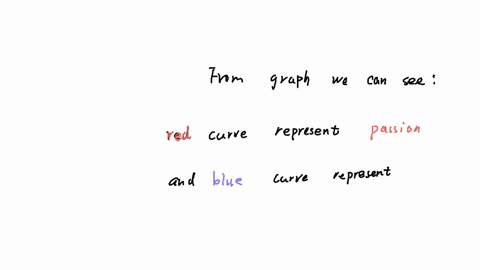 From graph we can see:
red curve represent passion
and blue curve represent